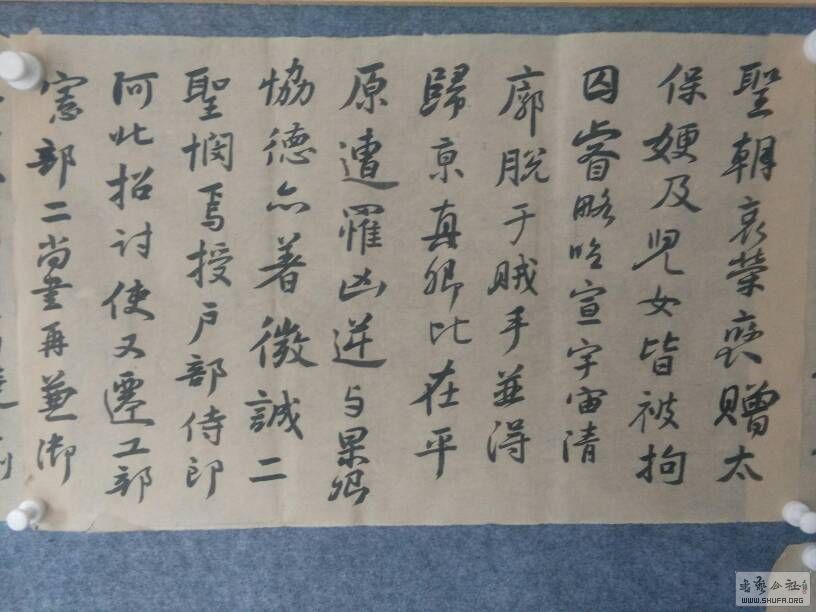 聖朝哀榮褒贈太
保㛐及兒女皆被拘
囚睿略昭宣宇宙清
廓脫于賊手並得
歸京真卿比在平
原遭罹凶逆与杲卿
恊德亦著微誠二
聖憫焉授戶部侍郎
河北招討使又遷工部
憲部二尚書再兼御
书艺公社
WWW.SHUFA.ORG